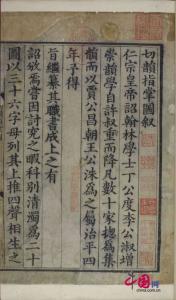 切韻指掌圖叙
仁宗皇帝詔翰林學士丁公度李公淑增
崇韻學自許叔重而降凡數十家揔為集
韻而以賈公昌朝王公洙為之屬治平四
年予得
旨繼纂其職書成上之有
詔頒焉嘗因討究之暇科別清濁為二十
圖以三十六字母列其上推四聲相生之